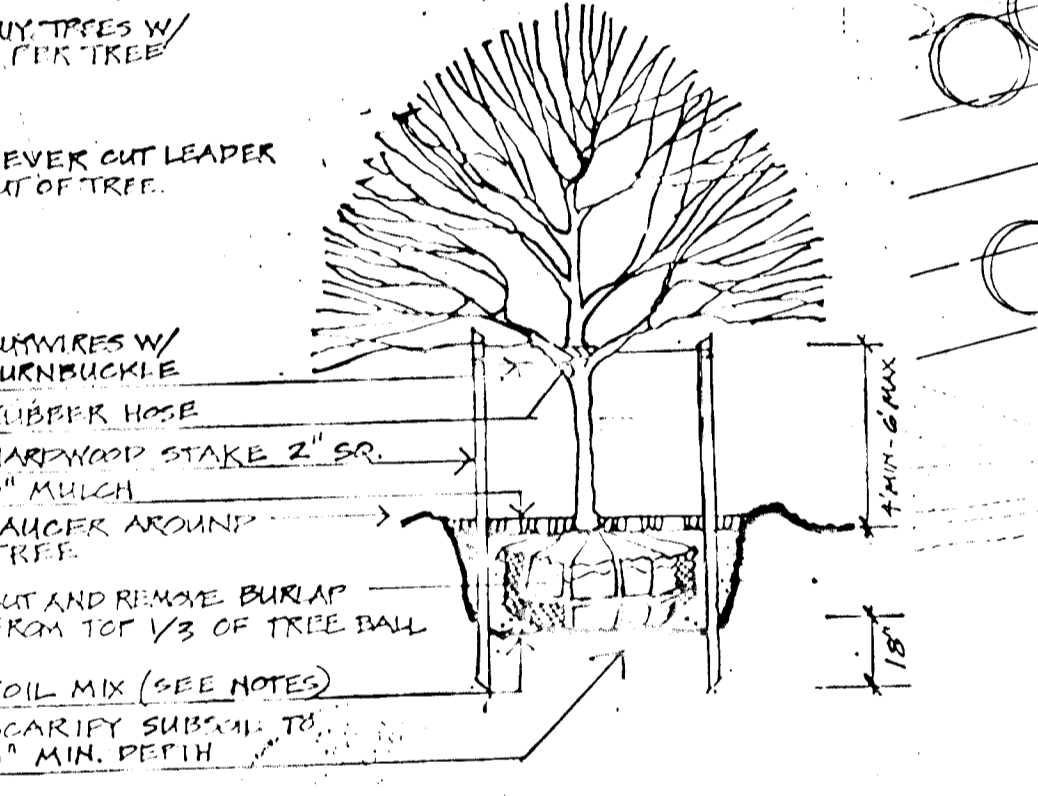 UY TREES W/
PER TREE
EVER CUT LEADER
UT OF TREE.
UYWIRES W/
URNBUCKLE
UBBER HOSE
HARDWOOD STAKE 2" SQ.
" MULCH
AUCER AROUND
TREE
UT AND REMOVE BURLAP
FROM TOP 1/3 OF TREE BALL
OIL MIX (SEE NOTES)
SCARIFY SUBSOIL TO
" MIN. DEPTH
4' MIN - 6' MAX
18"